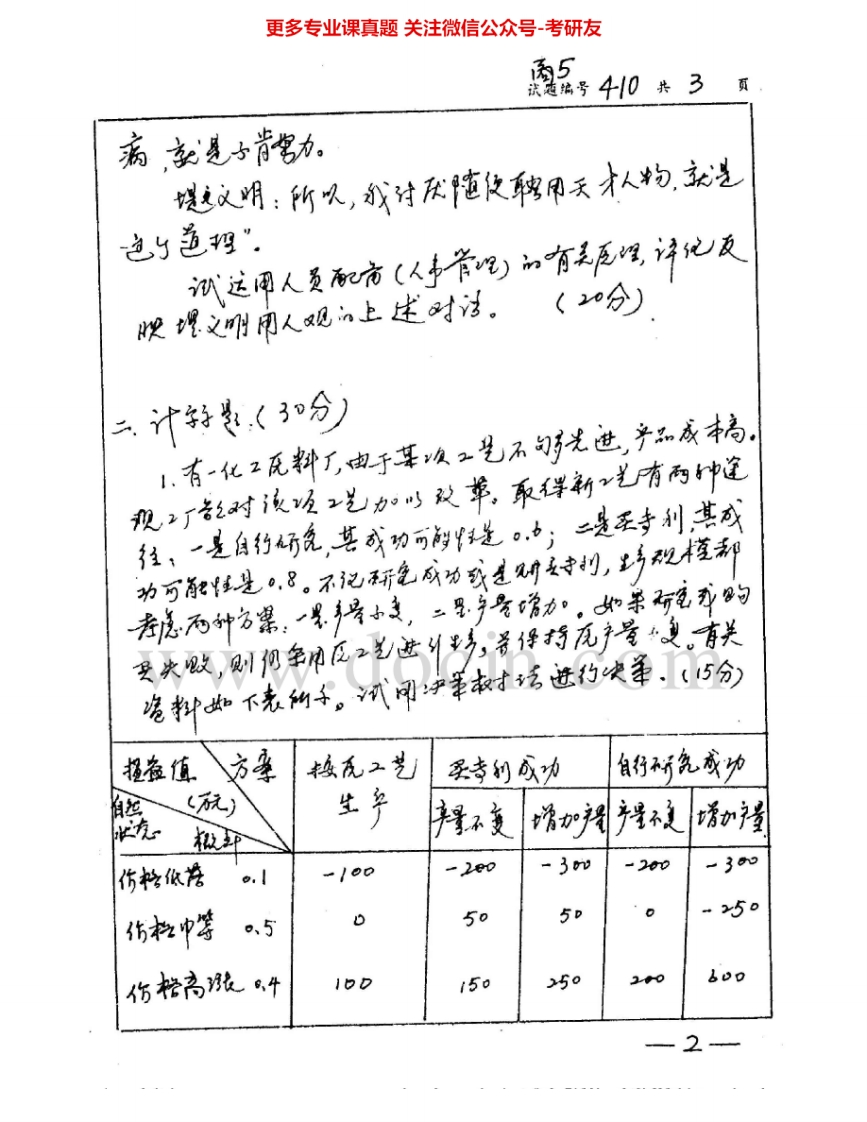 更多专业课真题 关注微信公众号-考研友
商5
试题编号 410 共 3 页
病,就是不肯努力。
堤义明:所以,我讨厌随便聘用天才人物,就是
这个道理”。
试运用人员配备(人事管理)的有关原理,评论反
映堤义明用人观的上述对话。 (20分)
二、计算题(30分)
1.有一化工原料厂,由于某项工艺不够先进,产品成本高。
现工厂欲对该项工艺加以改革。取得新工艺有两种途
径:一是自行研究,其成功可能性是0.6;二是买专利,其成
功可能性是0.8。不论研究成功或是购买专利,生产规模都
考虑两种方案:一是产量不变,二是产量增加。如果研究或购
买失败,则仍采用原工艺进行生产,并保持原产量不变。有关
资料如下表所示。试用决策树方法进行决策。(15分)
www.docin.com
损益值 (万元) 方案 自然状态 概率 按原工艺生产 买专利成功 自行研究成功
产量不变 增加产量 产量不变 增加产量
价格低落 0.1 -100 -200 -300 -200 -300
价格中等 0.5 0 50 50 0 -250
价格高涨 0.4 100 150 250 200 600
—2—